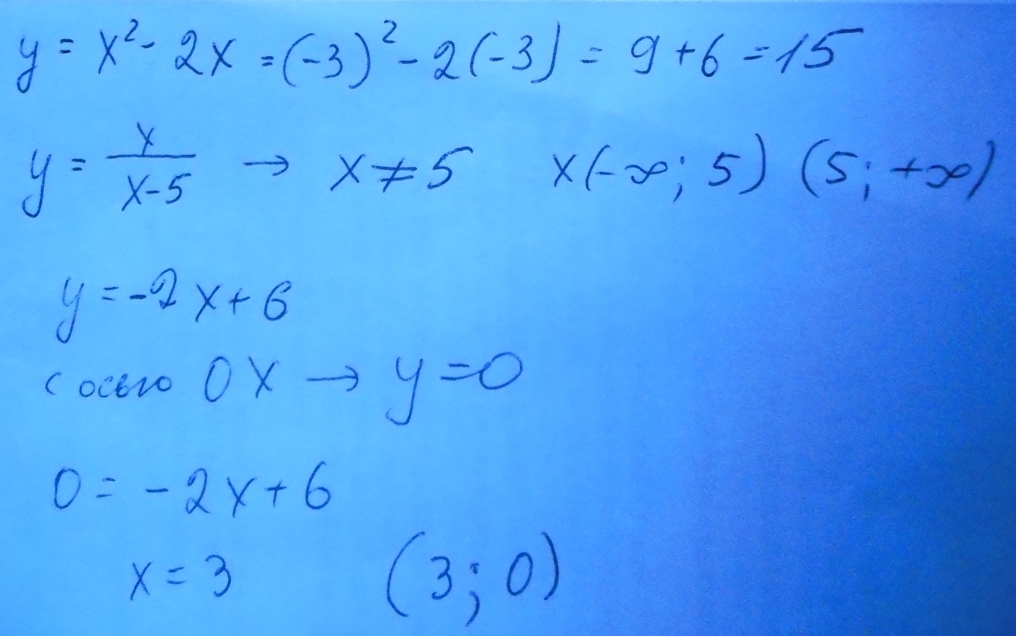 y = x² - 2x = (-3)² - 2(-3) = 9 + 6 = 15
y = x/(x-5) → x ≠ 5 x(-∞; 5) (5; +∞)
y = -2x + 6
с осью 0X → y = 0
0 = -2x + 6
x = 3 (3; 0)